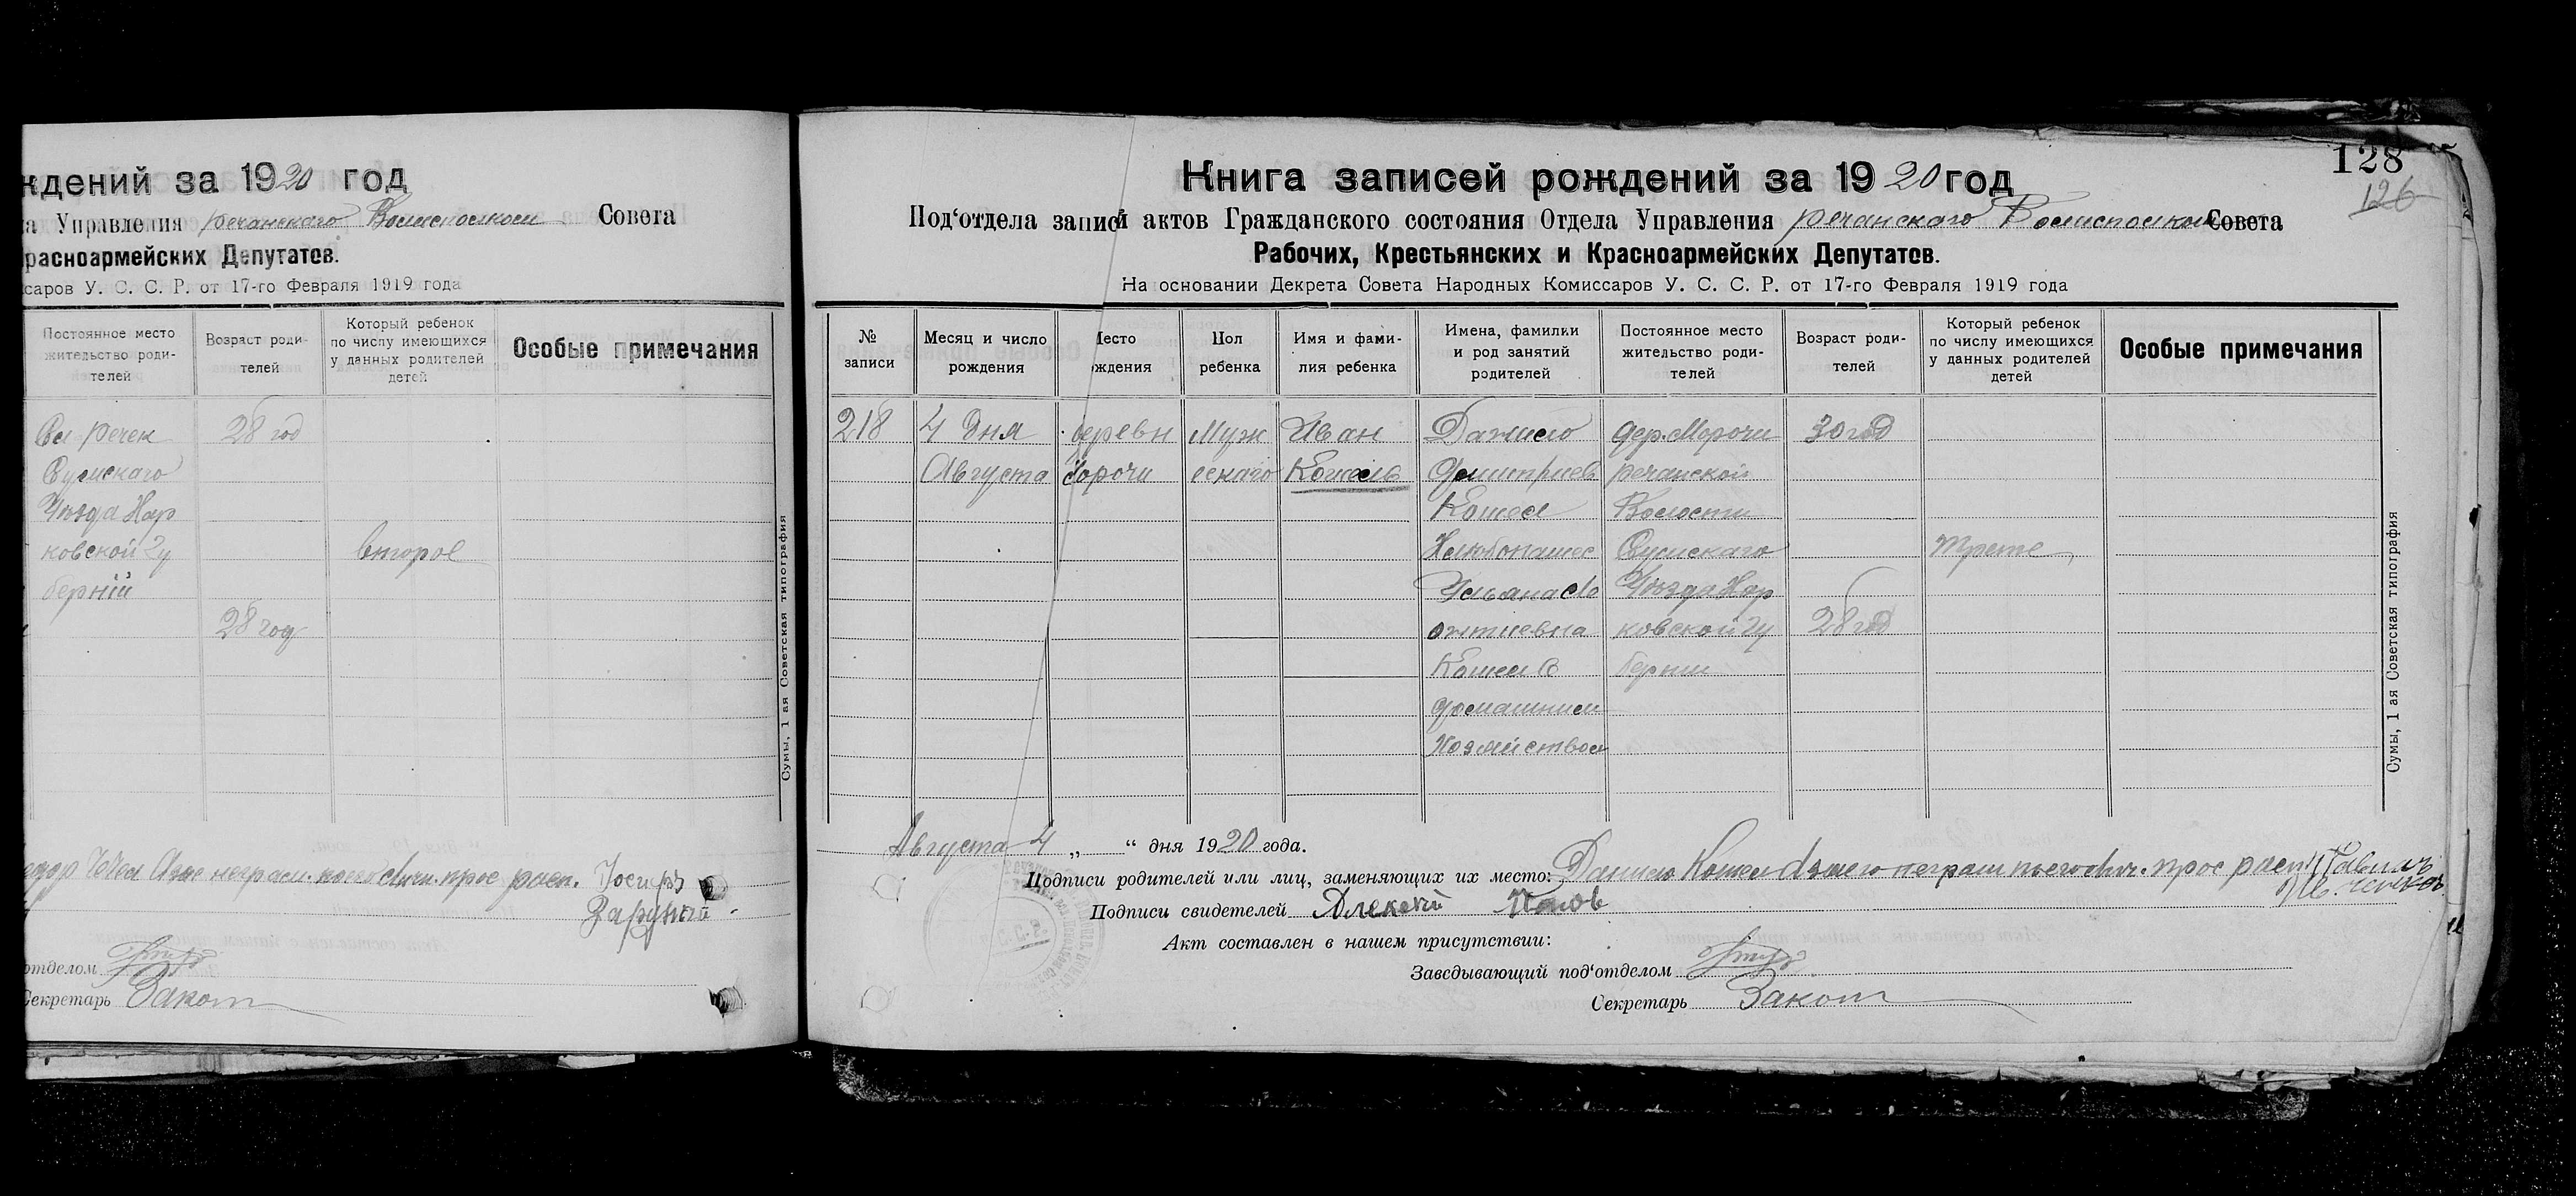 ждений за 1920 год
а Управления речанскаго Волисполком Совета
расноармейских Депутатов.
саров У. С. С. Р. от 17-го Февраля 1919 года
Постоянное место жительство роди- телей
Возраст роди- телей
Который ребенок по числу имеющихся у данных родителей детей
Особые примечания
Сел Речек 28 год
Сумскаго
Уезда Хар
ковской гу второе
берній
28 год
Сумы, 1 ая Советская типография
неграм. прос расп. Іосиф
Заруцкій
отделом
Секретарь Закот
128
126
Книга записей рождений за 1920 год
Под'отдела записи актов Гражданского состояния Отдела Управления речанскаго Волисполком Совета
Рабочих, Крестьянских и Красноармейских Депутатов.
На основании Декрета Совета Народных Комиссаров У. С. С. Р. от 17-го Февраля 1919 года
№ записи
Месяц и число рождения
Место рождения
Пол ребенка
Имя и фами- лия ребенка
Имена, фамилии и род занятий родителей
Постоянное место жительство роди- телей
Возраст роди- телей
Который ребенок по числу имеющихся у данных родителей детей
Особые примечания
218 4 дня деревн Муж Иван Данило дер. Мороча 30 год
Августа Морочи ескаго Кошель Дмитриев речанской
Кошел Волости
Хлебопашес Сумскаго Трете
Ульяна Уезда Хар
ковской гу 28 год
Кошель берни
домашним
Хозяйством
Сумы, 1 ая Советская типография
Августа 4 „ “ дня 1920 года.
Подписи родителей или лиц, заменяющих их место: Данило Кошел неграм прос расп
Подписи свидетелей Алексей
Акт составлен в нашем присутствии:
Заведывающий под'отделом
Секретарь Закот